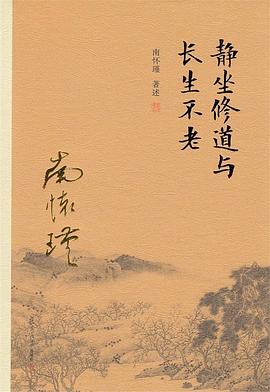 静坐修道与
长生不老
南怀瑾 著述
南怀瑾